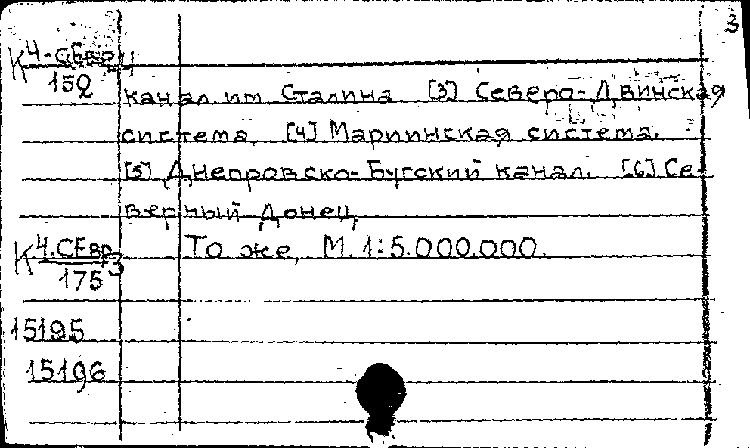 3
К 4-СЕвр Ц
152
канал им Сталина [3] Северо-Двинская
система. [4] Мариинская система.
[5] Днепровско-Бугский канал. [6] Се-
верный Донец.
К 4.СЕвр То же, М. 1:5.000.000.
175
15195
15196